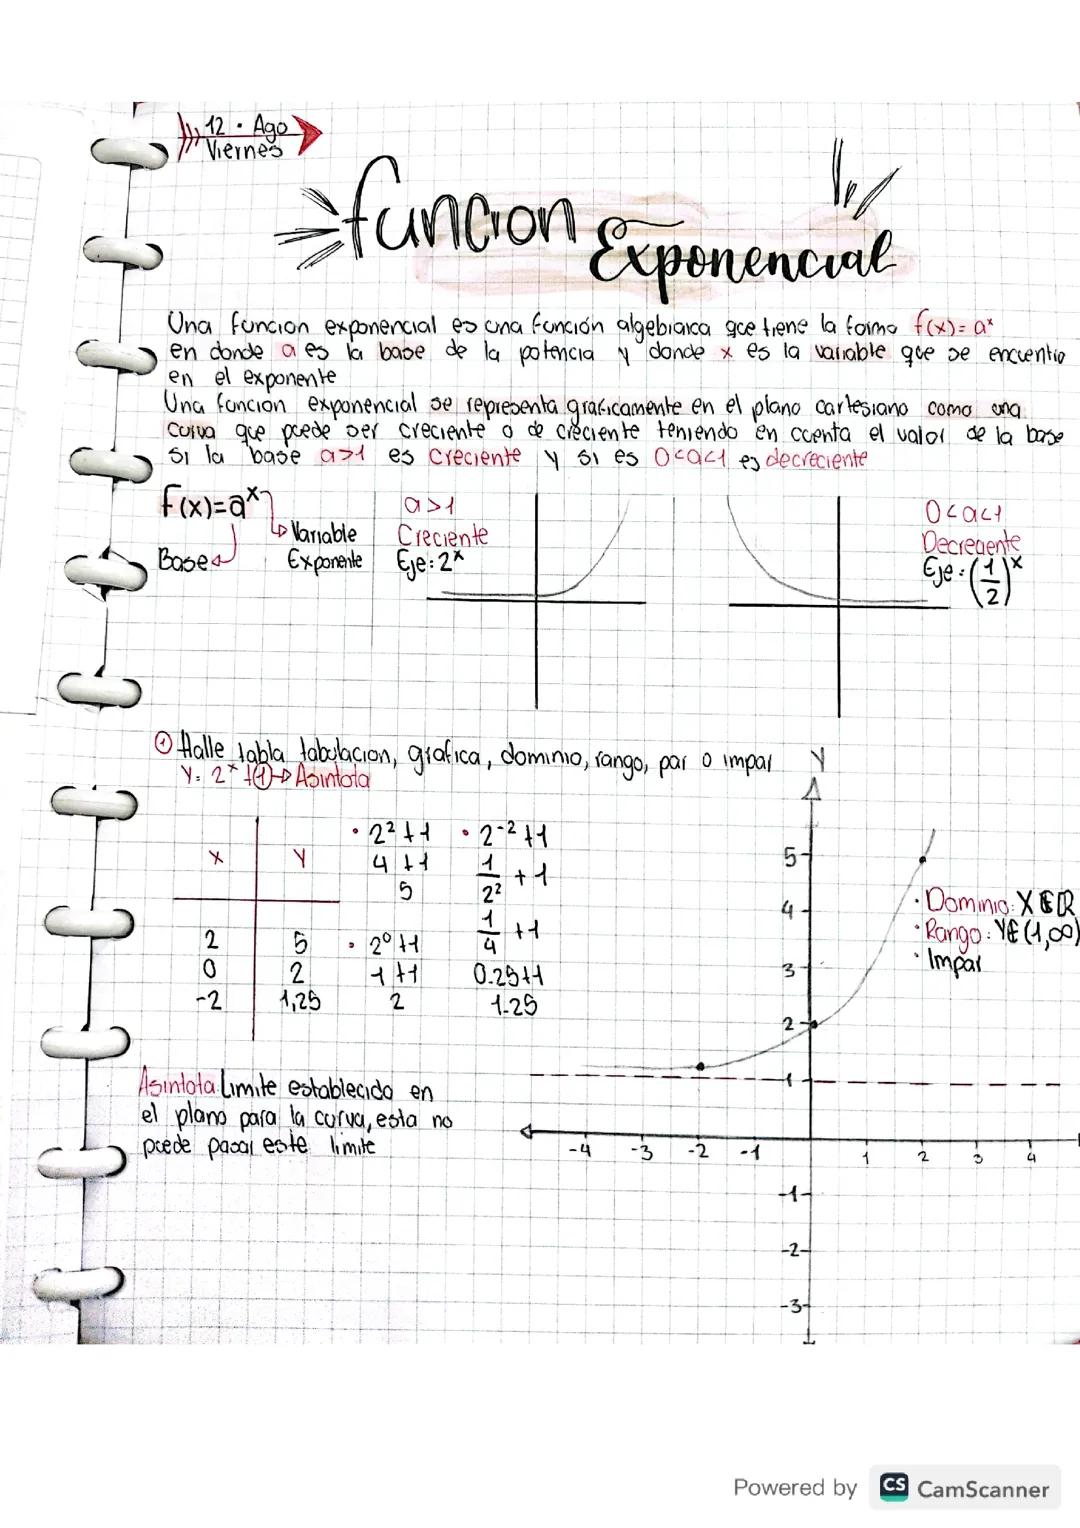 12 · Ago
Viernes
función Exponencial
Una función exponencial es una función algebraica que tiene la forma f(x)= aˣ
en donde a es la base de la potencia y donde x es la variable que se encuentra
en el exponente
Una función exponencial se representa graficamente en el plano cartesiano como una
curva que puede ser creciente o de creciente teniendo en cuenta el valor de la base
si la base a>1 es creciente y si es 0<a<1 es decreciente
f(x)=aˣ
Variable
Base
Exponente
a>1
Creciente
Eje: 2ˣ
0<a<1
Decreciente
Eje: (1/2)ˣ
① Halle tabla tabulacion, grafica, dominio, rango, par o impar
Y= 2ˣ +① → Asintota
X Y
2 5
0 2
-2 1,25
• 2² +1
4 +1
5
• 2⁰ +1
1 +1
2
• 2⁻² +1
1/2² + 1
1/4 +1
0.25+1
1.25
Y
5
4
3
2
1
-1
-2
-3
-4 -3 -2 -1 1 2 3 4
• Dominio: X ∈ R
• Rango: Y ∈ (1,∞)
• Impar
Asintota: Limite establecido en
el plano para la curva, esta no
puede pasar este limite
Powered by CS CamScanner